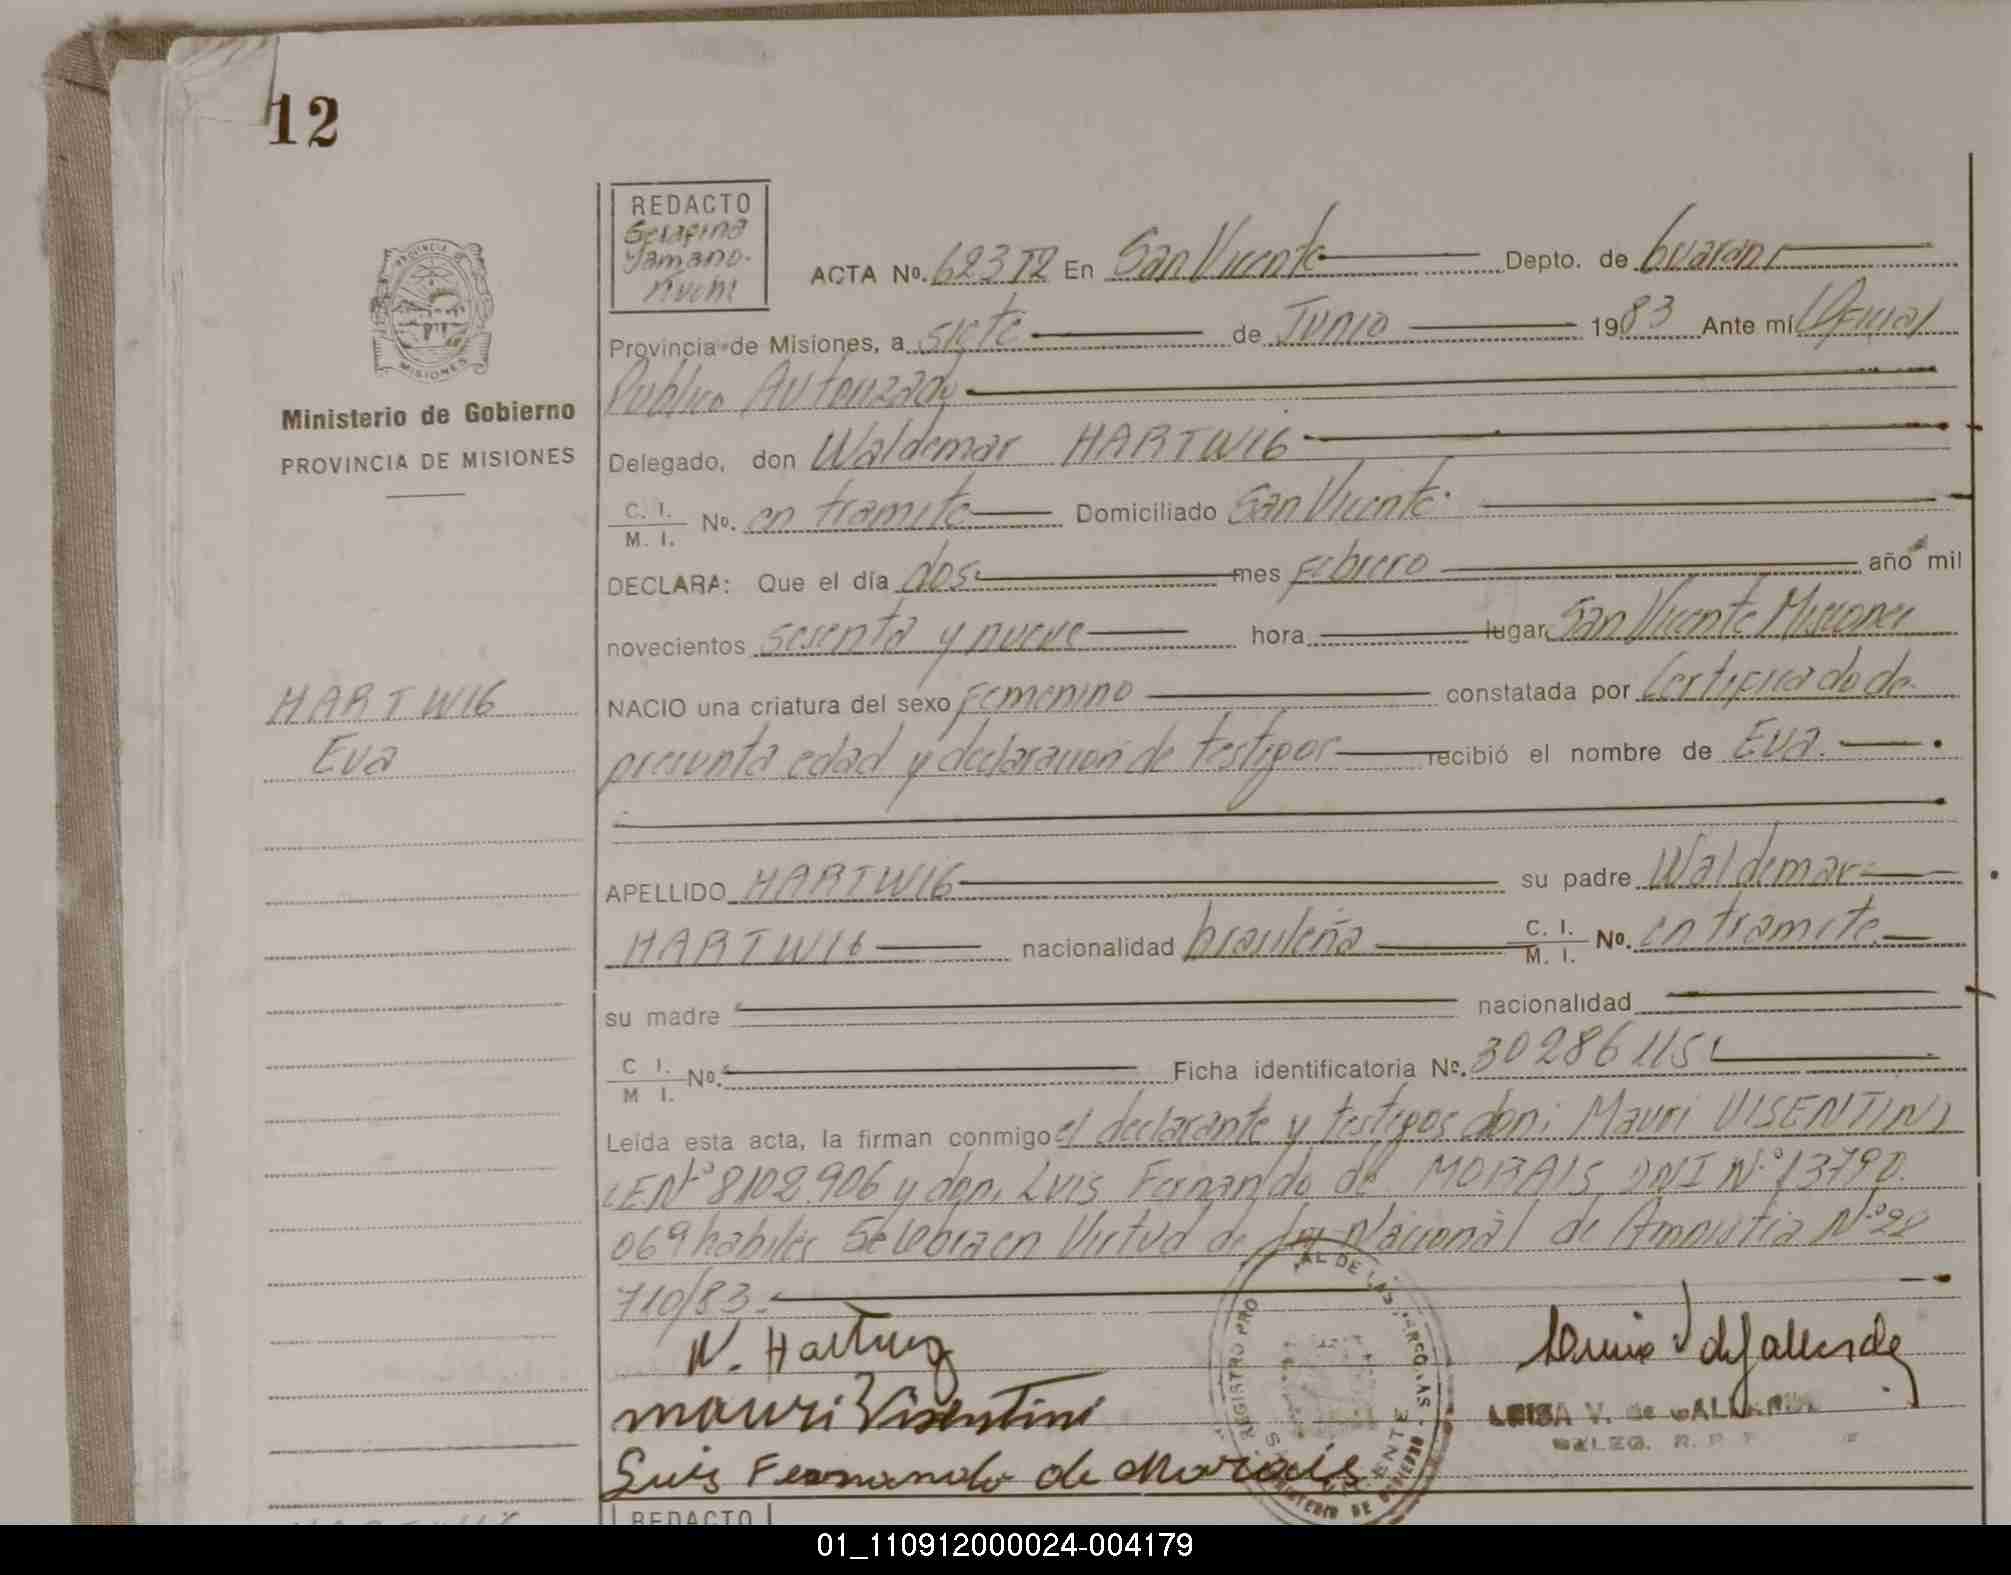 12
REDACTO
Serafina
Yamano-
Kuchi
ACTA No. 623 T2 En San Vicente Depto. de Guarani
Provincia de Misiones, a siete de Junio 1983 Ante mí Oficial
Publico Autorizado
Delegado, don Waldemar HARTWIG
C. I.
M. I. No. en tramite Domiciliado San Vicente
DECLARA: Que el día dos mes Febrero año mil
novecientos sesenta y nueve hora lugar San Vicente Misiones
NACIO una criatura del sexo Femenino constatada por Certificado de
presunta edad y declaracion de testigos recibió el nombre de Eva.
APELLIDO HARTWIG su padre Waldemar
HARTWIG nacionalidad brasileña C. I.
M. I. No. en tramite
su madre nacionalidad
C I.
M I. No. Ficha identificatoria No. 30286115
Leída esta acta, la firman conmigo el declarante y testigos don: Mauri VISENTINI
LE Nº 8102906 y don, Luis Fernando de MORAIS DNI Nº 13790.
069 habiles Se labra en Virtud de Ley Nacional de Amnistia Nº 22
710/83.
W. Hartwig
Mauri Visentini
Luis Fernando de Morais
LUISA V. de GALLARDO
DELEG. R. P.
REGISTRO PRO AL DE LAS
MINISTERIO DE GOBIERNO
PROVINCIA
MISIONES
Ministerio de Gobierno
PROVINCIA DE MISIONES
HARTWIG
Eva
REDACTO
01_110912000024-004179